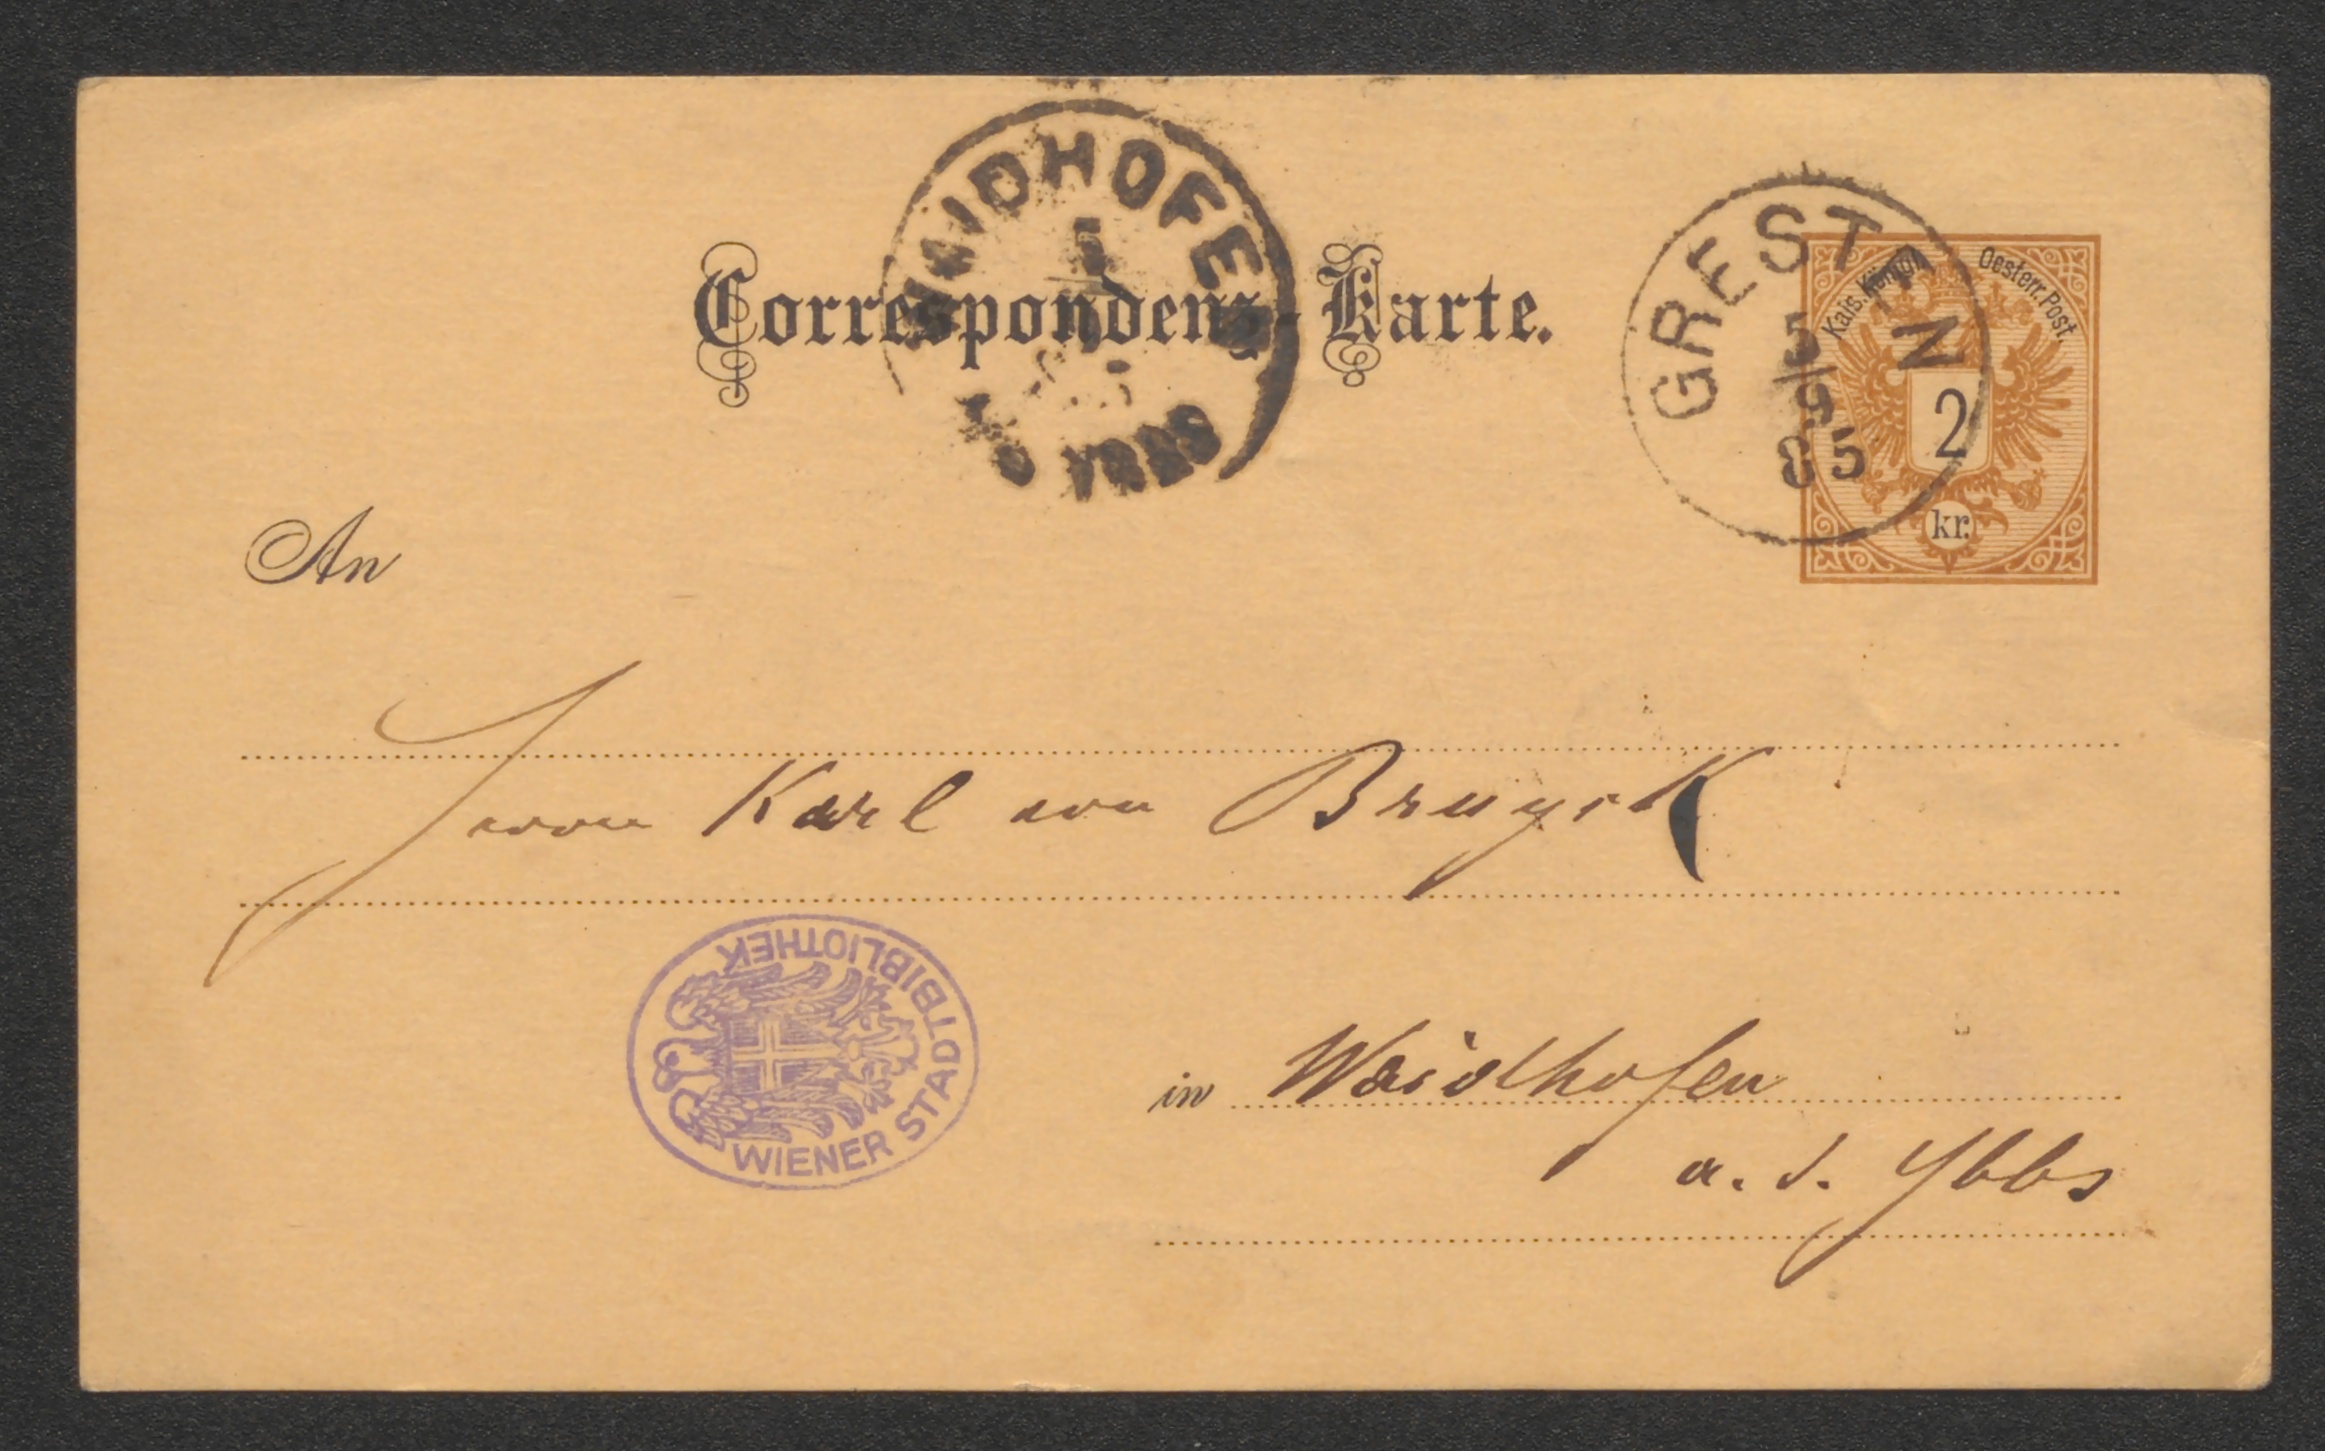 WAIDHOFEN
5
A. D. YBBS
Correspondenz-Karte.
GRESTEN
5
9
85
Kais. Königl. Oesterr. Post.
2
kr.
An
Herrn Karl von Bruyck
WIENER STADTBIBLIOTHEK
in Waidhofen
a. d. Ybbs